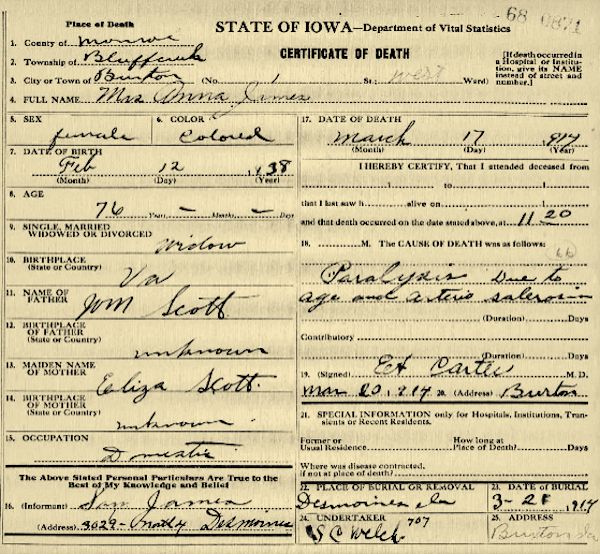 68 0871
Place of Death
STATE OF IOWA—Department of Vital Statistics
CERTIFICATE OF DEATH
[If death occurred in a Hospital or Institution, give its NAME instead of street and number.]
1. County of Monroe
2. Township of Bluff creek
3. City or Town of Buxton (No. 1 St.; West Ward)
4. FULL NAME Mrs Anna James
5. SEX female
6. COLOR Colored
7. DATE OF BIRTH
Feb 12 1838
(Month) (Day) (Year)
8. AGE
76 Years, – Months, – Days
9. SINGLE, MARRIED
WIDOWED OR DIVORCED Widow
10. BIRTHPLACE
(State or Country) Va
11. NAME OF
FATHER Wm Scott
12. BIRTHPLACE
OF FATHER
(State or Country) unknown
13. MAIDEN NAME
OF MOTHER Eliza Scott.
14. BIRTHPLACE
OF MOTHER
(State or Country) unknown
15. OCCUPATION
Domestic
The Above Stated Personal Particulars Are True to the
Best of My Knowledge and Belief
16. (Informant) Sam James
(Address) 3029- Desmoines
17. DATE OF DEATH
March 17 1914
(Month) (Day) (Year)
I HEREBY CERTIFY, That I attended deceased from
1 to 1
that I last saw h alive on 1
and that death occurred on the date stated above, at 11 20
18. M. The CAUSE OF DEATH was as follows:
Paralysis Due to
age and arterio
(Duration) Days
Contributory
(Duration) Days
19. (Signed) Carter M. D.
Mar 20 1914 20. (Address) Buxton
21. SPECIAL INFORMATION only for Hospitals, Institutions, Transients or Recent Residents.
Former or
Usual Residence. How long at
Place of Death? Days
Where was disease contracted,
if not at place of death?
22. PLACE OF BURIAL OR REMOVAL
Desmoines Ia
23. DATE OF BURIAL
3-21 1914
24. UNDERTAKER 707
S C Welch
25. ADDRESS
Buxton Ia